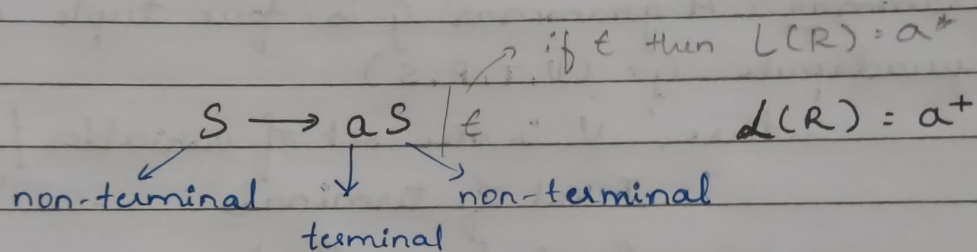 if ϵ then L(R) = a*
S → aS | ϵ L(R) = a⁺
non-terminal non-terminal
terminal